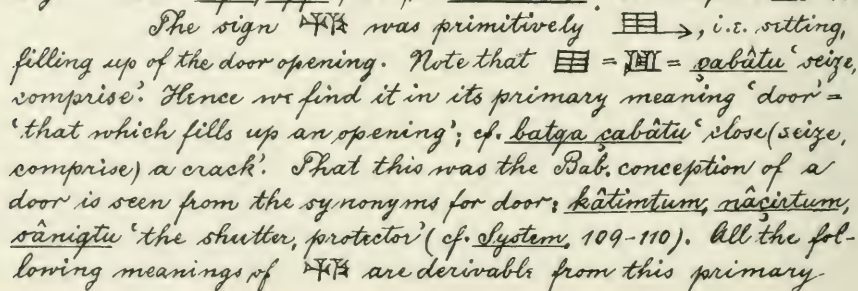 The sign 𒅅 was primitively →, i.e. setting,
filling up of the door opening. Note that = = ṣabâtu ‘seize,
comprise’. Hence we find it in its primary meaning ‘door’ =
‘that which fills up an opening’; cf. batqa ṣabâtu ‘close (seize,
comprise) a crack’. That this was the Bab. conception of a
door is seen from the synonyms for door: kâtimtum, nâṣirtum,
sâniqtu ‘the shutter, protector’ (cf. System, 109-110). All the fol-
lowing meanings of 𒅅 are derivable from this primary